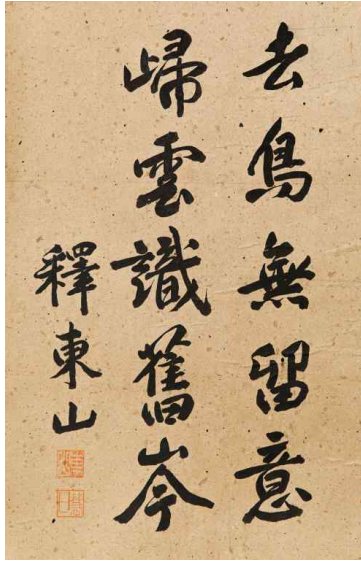 去鳥無留意
歸雲識舊岑
釋東山